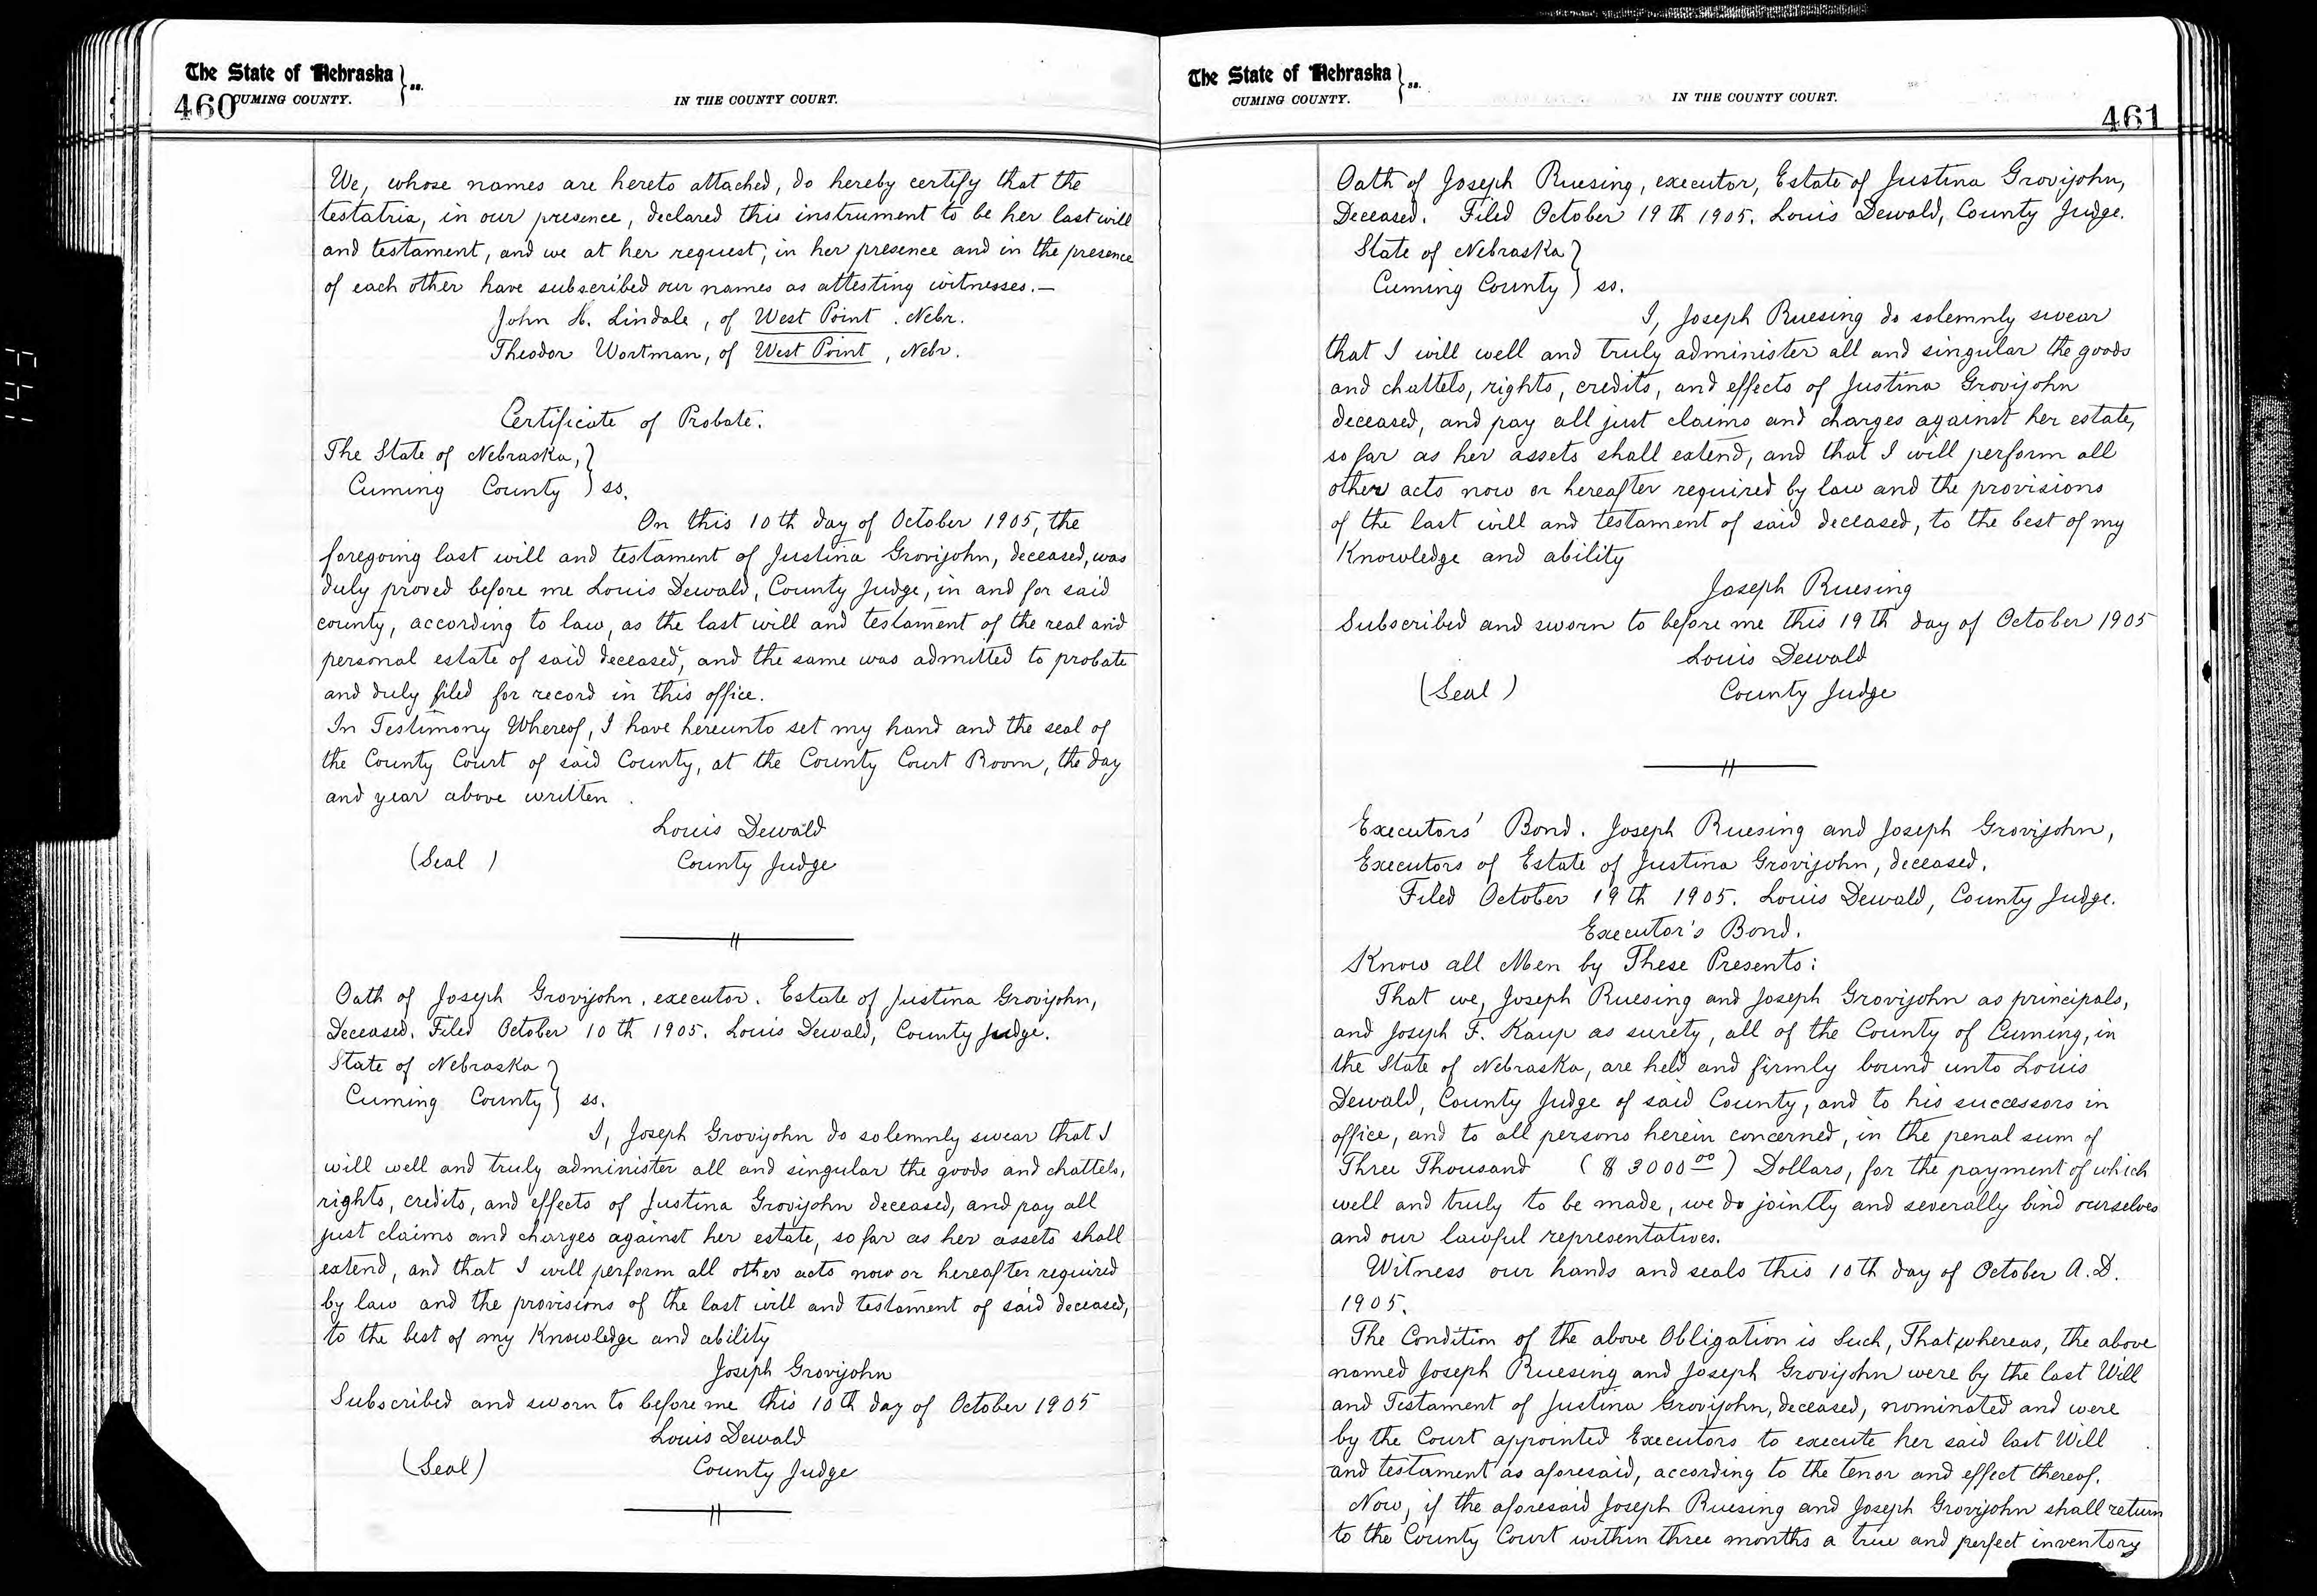 The State of Nebraska } ss.
460 CUMING COUNTY.
IN THE COUNTY COURT.
We, whose names are hereto attached, do hereby certify that the
testatrix, in our presence, declared this instrument to be her last will
and testament, and we at her request, in her presence and in the presence
of each other have subscribed our names as attesting witnesses.—
John H. Lindale, of West Point. Nebr.
Theodor Wortman, of West Point, Nebr.
Certificate of Probate.
The State of Nebraska, }
Cuming County } ss.
On this 10th day of October 1905, the
foregoing last will and testament of Justina Grovijohn, deceased, was
duly proved before me Louis Dewald, County Judge, in and for said
county, according to law, as the last will and testament of the real and
personal estate of said deceased, and the same was admitted to probate
and duly filed for record in this office.
In Testimony Whereof, I have hereunto set my hand and the seal of
the County Court of said County, at the County Court Room, the day
and year above written.
Louis Dewald
(Seal) County Judge
Oath of Joseph Grovijohn, executor. Estate of Justina Grovijohn,
Deceased. Filed October 10th 1905. Louis Dewald, County Judge.
State of Nebraska }
Cuming County } ss.
I, Joseph Grovijohn do solemnly swear that I
will well and truly administer all and singular the goods and chattels,
rights, credits, and effects of Justina Grovijohn deceased, and pay all
just claims and charges against her estate, so far as her assets shall
extend, and that I will perform all other acts now or hereafter required
by law and the provisions of the last will and testament of said deceased,
to the best of my Knowledge and ability
Joseph Grovijohn
Subscribed and sworn to before me this 10th day of October 1905
Louis Dewald
(Seal) County Judge
The State of Nebraska } ss.
CUMING COUNTY.
IN THE COUNTY COURT.
461
Oath of Joseph Ruesing, executor, Estate of Justina Grovijohn,
Deceased. Filed October 19th 1905. Louis Dewald, County Judge.
State of Nebraska }
Cuming County } ss.
I, Joseph Ruesing do solemnly swear
that I will well and truly administer all and singular the goods
and chattels, rights, credits, and effects of Justina Grovijohn
deceased, and pay all just claims and charges against her estate,
so far as her assets shall extend, and that I will perform all
other acts now or hereafter required by law and the provisions
of the last will and testament of said deceased, to the best of my
Knowledge and ability
Joseph Ruesing
Subscribed and sworn to before me this 19th day of October 1905
Louis Dewald
(Seal) County Judge
Executors' Bond. Joseph Ruesing and Joseph Grovijohn,
Executors of Estate of Justina Grovijohn, deceased.
Filed October 19th 1905. Louis Dewald, County Judge.
Executor's Bond.
Know all Men by These Presents:
That we, Joseph Ruesing and Joseph Grovijohn as principals,
and Joseph F. Kaup as surety, all of the County of Cuming, in
the State of Nebraska, are held and firmly bound unto Louis
Dewald, County Judge of said County, and to his successors in
office, and to all persons herein concerned, in the penal sum of
Three Thousand ($3000 00) Dollars, for the payment of which
well and truly to be made, we do jointly and severally bind ourselves
and our lawful representatives.
Witness our hands and seals this 10th day of October A.D.
1905.
The Condition of the above Obligation is Such, That, whereas, the above
named Joseph Ruesing and Joseph Grovijohn were by the last Will
and Testament of Justina Grovijohn, deceased, nominated and were
by the Court appointed Executors to execute her said last Will
and testament as aforesaid, according to the tenor and effect thereof.
Now, if the aforesaid Joseph Ruesing and Joseph Grovijohn shall return
to the County Court within three months a true and perfect inventory